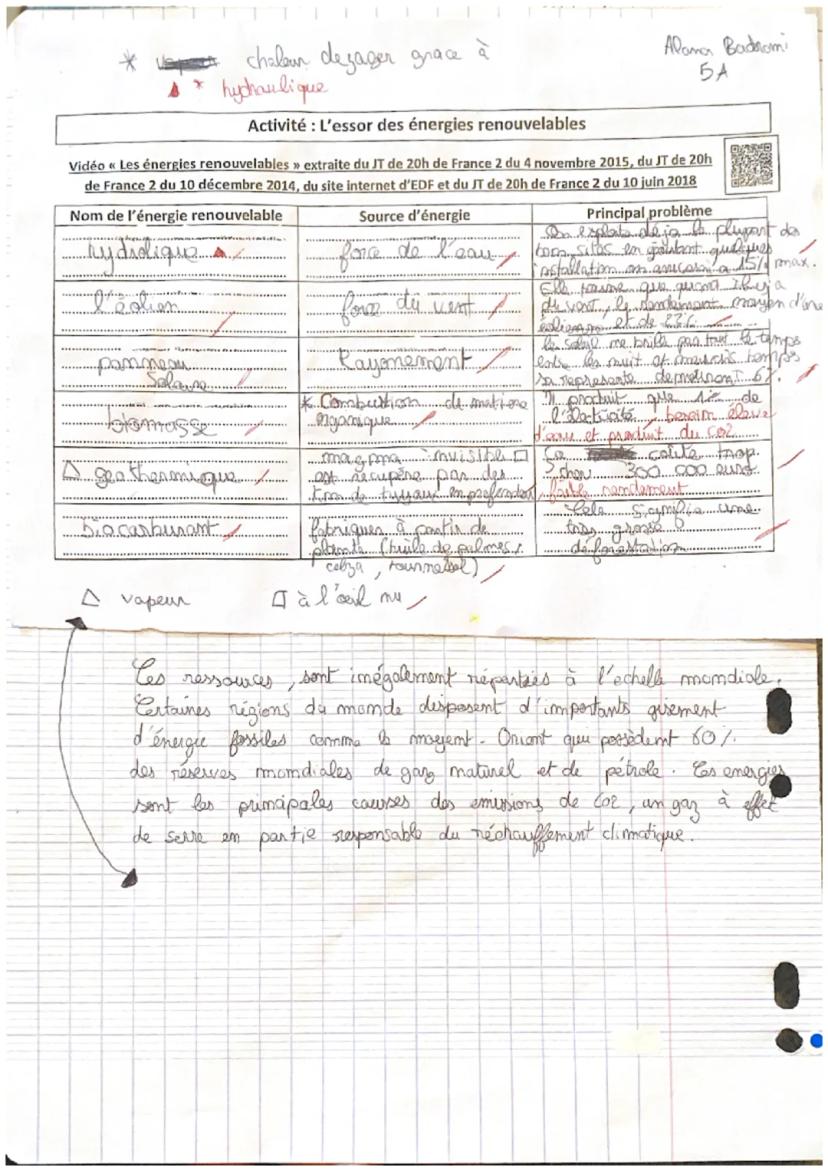 * chaleur dezager grace à
Alana Badrami
5A
▲ * hydraulique
Activité : L'essor des énergies renouvelables
Vidéo « Les énergies renouvelables » extraite du JT de 20h de France 2 du 4 novembre 2015, du JT de 20h
de France 2 du 10 décembre 2014, du site internet d'EDF et du JT de 20h de France 2 du 10 juin 2018
Nom de l'énergie renouvelable
Source d'énergie
Principal problème
hydrolique ▲
force de l'eau
On exploite deja la plupart des
bons sites en ajoutant quelques
installation on à 15% max.
l'éolien
force du vent
Elle tourne que quand il y a
du vent, le rendement moyen d'une
éolienne et de 23%
panneau
Solaire
Rayonement
le soleil ne brille pas tout le temps
entre les nuit et mauvais temps
sa represente 6%.
biomasse
* Combustion de matière
organique
Il produit que 1% de
l'électricité, besoin eleve
d'eau et produit du CO2
△ geothermique
magma invisible □
est récupéré par des
km de tuyaux en profondeur
Ca coûte trop
cher 300 000 euros.
faible rendement
biocarburant
fabriquer à partir de
plante (huile de palmes,
colza, tournesol)
Cela signifie une
très grosse
déforestation
△ vapeur
□ à l'œil nu
Ces ressources, sont inégalement réparties à l'echelle mondiale.
Certaines régions du monde disposent d'importants gisement
d'énergie fossiles comme le moyent-Orient qui possèdent 60%
des réserves mondiales de gaz naturel et de pétrole. Ces energies
sont les principales causes des emissions de CO2, un gaz à effet
de serre en partie responsable du réchauffement climatique.